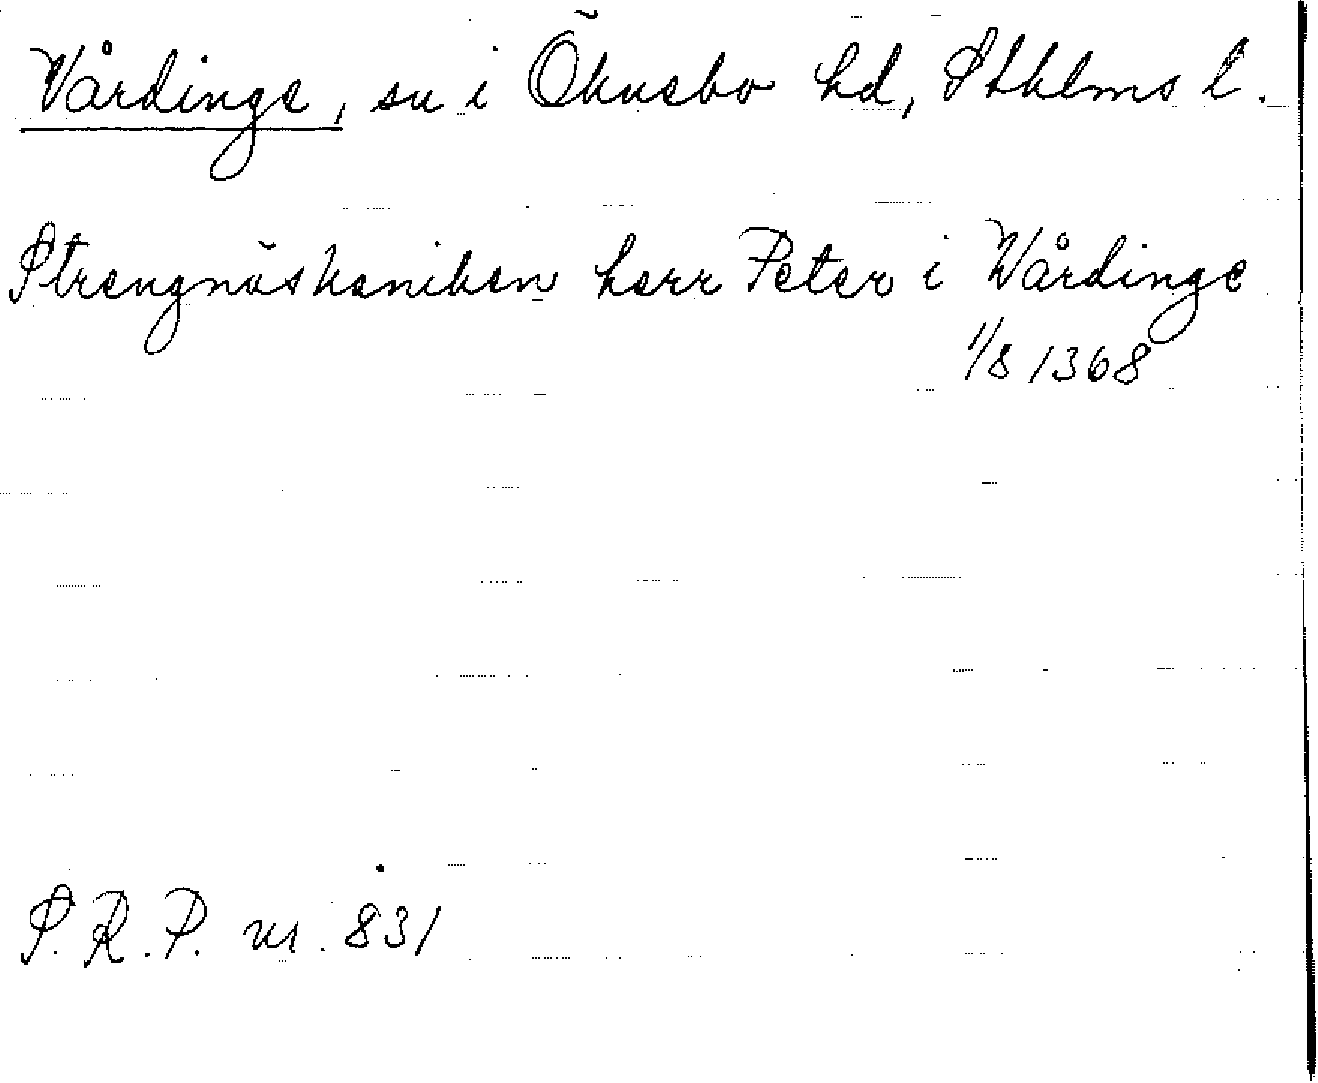 Vårdinge, sn i Öknebo hd, Sthlms l.
Strengnäskaniken herr Peter i Wårdinge
1/8 1368
S.R.P. nr. 831